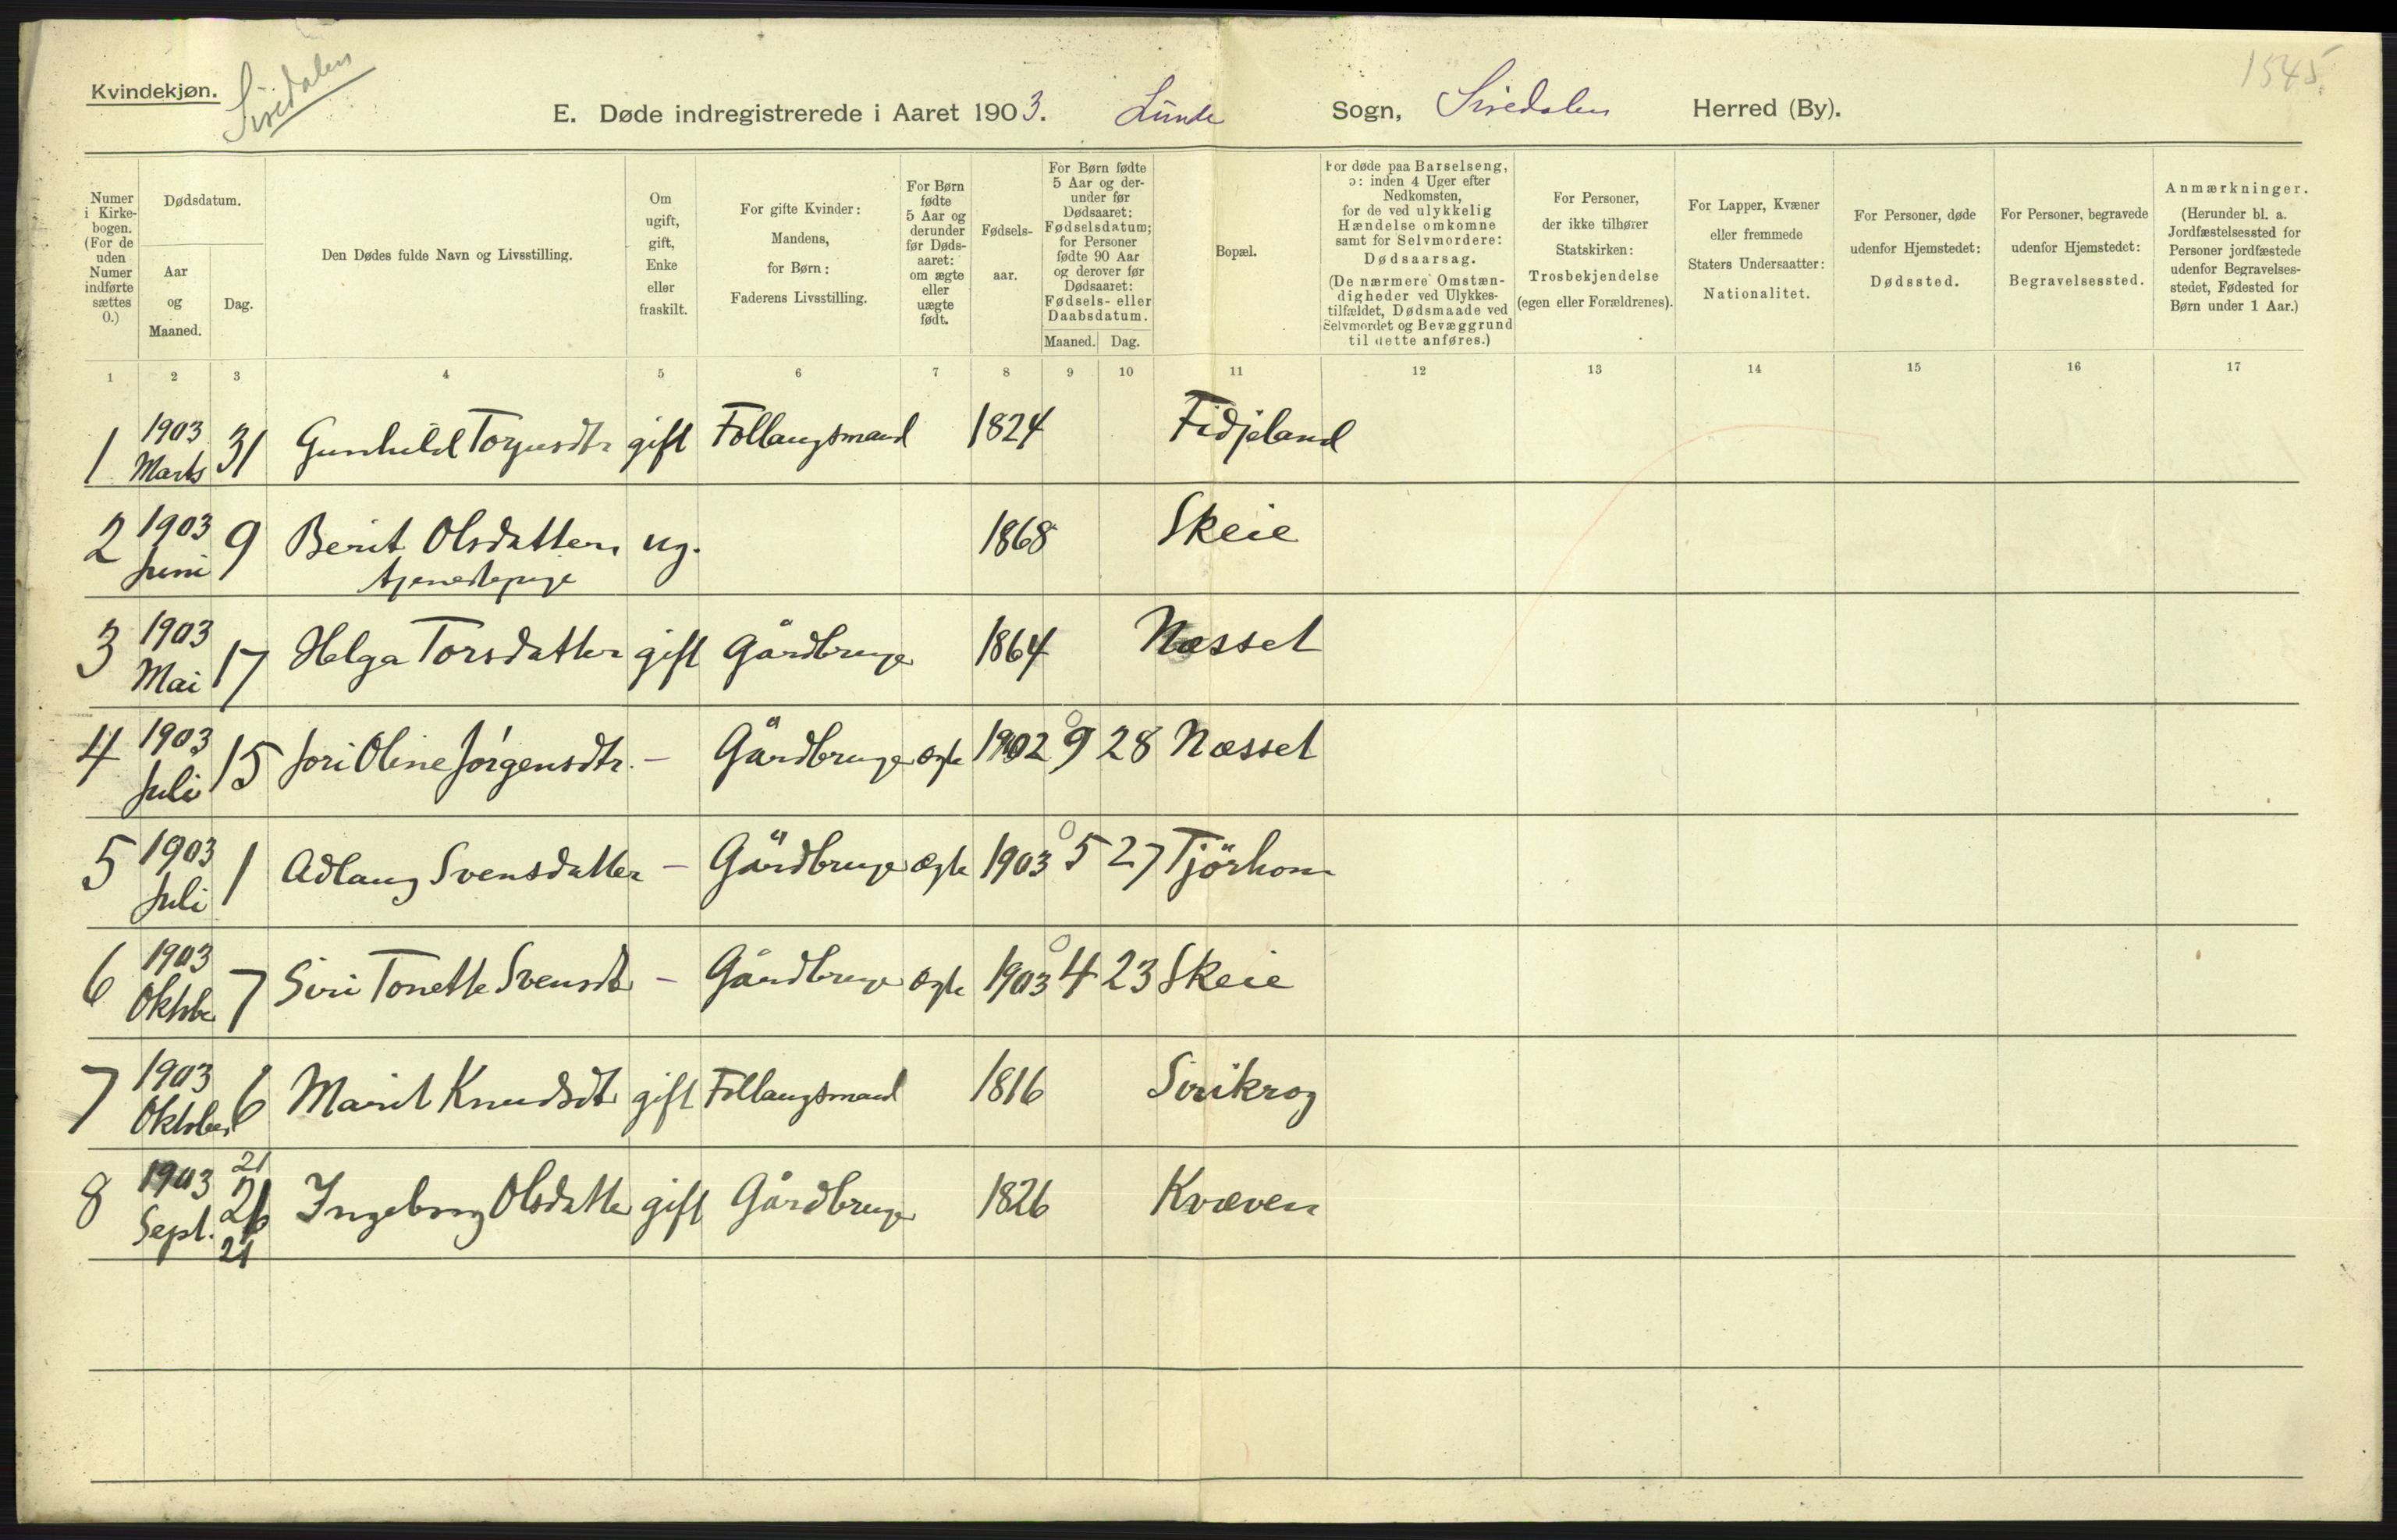 Kvindekjøn.
Siredalen
1545.
E. Døde indregistrerede i Aaret 1903. Lunde Sogn, Siredalen Herred (By).
Numer i Kirke-bogen. (For de uden Numer indførte sættes 0.)
Dødsdatum.
Aar og Maaned.
Dag.
Den Dødes fulde Navn og Livsstilling.
Om ugift, gift, Enke eller fraskilt.
For gifte Kvinder: Mandens, for Børn: Faderens Livsstilling.
For Børn fødte 5 Aar og derunder før Døds-aaret: om ægte eller uægte født.
Fødsels-aar.
For Børn fødte 5 Aar og der-under før Dødsaaret: Fødselsdatum; for Personer fødte 90 Aar og derover før Dødsaaret: Fødsels- eller Daabsdatum.
Maaned. Dag.
Bopæl.
For døde paa Barselseng, ɔ: inden 4 Uger efter Nedkomsten, for de ved ulykkelig Hændelse omkomne samt for Selvmordere: Dødsaarsag. (De nærmere Omstæn-digheder ved Ulykkes-tilfældet, Dødsmaade ved Selvmordet og Bevæggrund til dette anføres.)
For Personer, der ikke tilhører Statskirken: Trosbekjendelse (egen eller Forældrenes).
For Lapper, Kvæner eller fremmede Staters Undersaatter: Nationalitet.
For Personer, døde udenfor Hjemstedet: Dødssted.
For Personer, begravede udenfor Hjemstedet: Begravelsessted.
Anmærkninger. (Herunder bl. a. Jordfæstelsessted for Personer jordfæstede udenfor Begravelses-stedet, Fødested for Børn under 1 Aar.)
1 2 3 4 5 6 7 8 9 10 11 12 13 14 15 16 17
1 1903 Marts 31 Gunhild Torjusdtr gift Follaugsmand 1824 Fidjeland
2 1903 Juni 9 Berit Olsdatter, ug. 1868 Skeie
tjenestepige
3 1903 Mai 17 Helga Torsdatter gift Gårdbruger 1864 Næsset
4 1903 Juli 15 Jori Oline Jørgensdtr. - Gårdbruger ægte 1902 9 28 Næsset
5 1903 Juli 1 Adlaug Svensdatter - Gårdbruger ægte 1903 5 27 Tjörhom
6 1903 Oktober 7 Siri Tonette Svensdtr - Gårdbruger ægte 1903 4 23 Skeie
7 1903 Oktober 6 Marit Knudsdtr gift Follaugsmand 1816 Sirikrog
8 1903 Sept. 21 26 21 Ingeborg Olsdatter gift Gårdbruger 1826 Kvæven